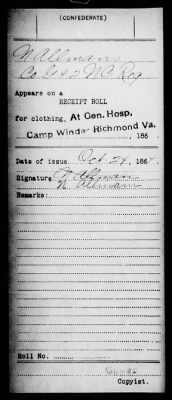 (CONFEDERATE)
N Allmans
Co 42 N C Reg
Appears on a
RECEIPT ROLL
for clothing, At Gen. Hosp,
Camp Winder Richmond Va.
186 .
Date of issue Oct 24, 1864.
Signature N Allman
N Allmam
Remarks:
Roll No.
Copyist.